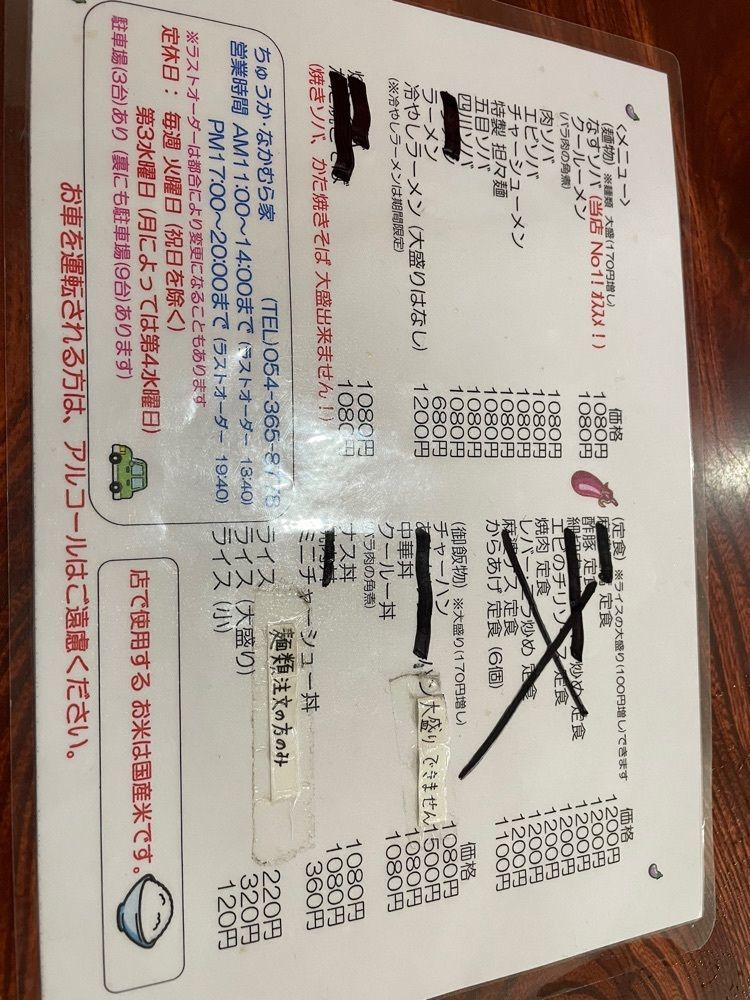 <メニュー>
(麺物) ※麺類 大盛(170円増し) 価格
なすソバ (当店 No1! オススメ!) 1080円
クールーメン 1080円
(バラ肉の角煮)
肉ソバ 1080円
エビソバ 1080円
チャーシューメン 1080円
特製 担々麺 1080円
五目ソバ 1080円
四川ソバ 1080円
ラーメン 680円
冷やしラーメン (大盛りはなし) 1200円
(※冷やしラーメンは期間限定)
1080円
1080円
(焼きソバ、かた焼きそば 大盛出来ません!!)
ちゅうか・なかむら家 (TEL)054-365-8778
営業時間 AM11:00~14:00まで (ラストオーダー 1340)
PM17:00~20:00まで (ラストオーダー 1940)
※ラストオーダーは都合により変更になることもあります
定休日: 毎週 火曜日 (祝日を除く)
第3水曜日 (月によっては第4水曜日)
駐車場(3台)あり (裏にも駐車場(9台)あります)
お車を運転される方は、アルコールはご遠慮ください。
(定食) ※ライスの大盛り(100円増し)できます 価格
定食 1200円
酢豚 定食 1200円
炒め 定食 1200円
エビのチリソース 定食 1200円
焼肉 定食 1200円
レバーニラ炒め 定食 1200円
定食 1200円
からあげ 定食 (6個) 1100円
(御飯物) ※大盛り(170円増し) 価格
チャーハン 1080円
ハン 大盛りできません 1500円
中華丼 1080円
クールー丼 1080円
(バラ肉の角煮)
ナス丼 1080円
丼 1080円
ミニチャーシュー丼 360円
麺類注文の方のみ
ライス 220円
ライス (大盛り) 320円
ライス (小) 120円
店で使用する お米は国産米です。